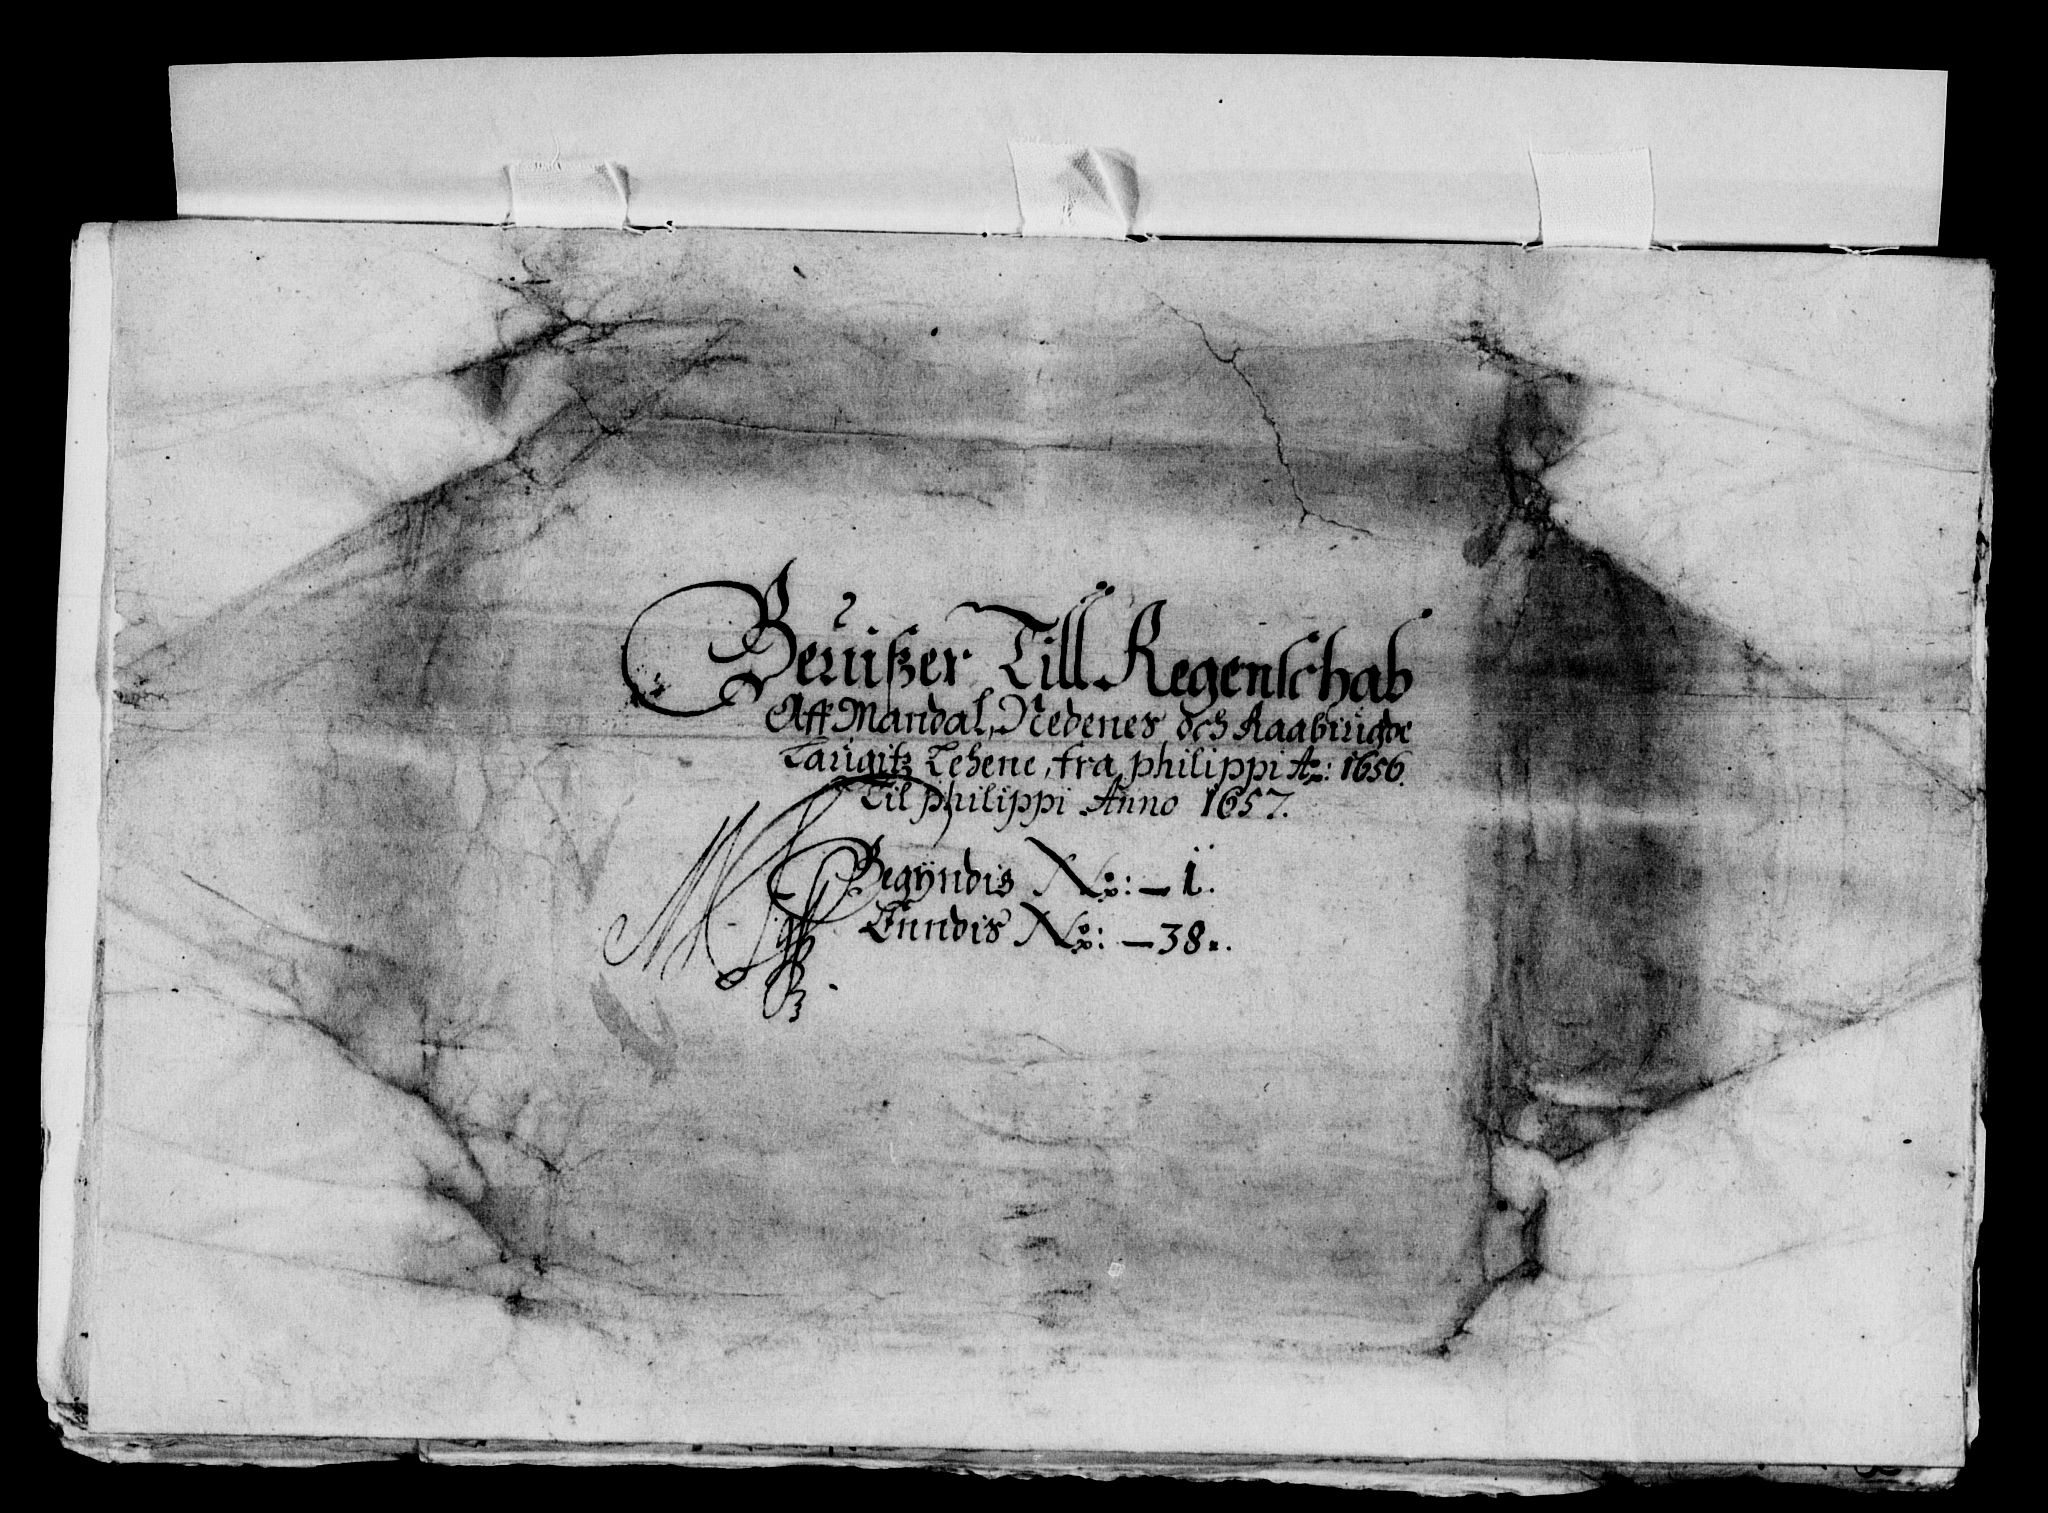 Beuißer Till Regenschab
Aff Mandal, Nedenes och Raabÿugde
Laugitz Lehene, fra philippi Ao: 1656.
Til philippi Anno 1657.
Begÿndis No: — 1.
Enndis No: — 38.